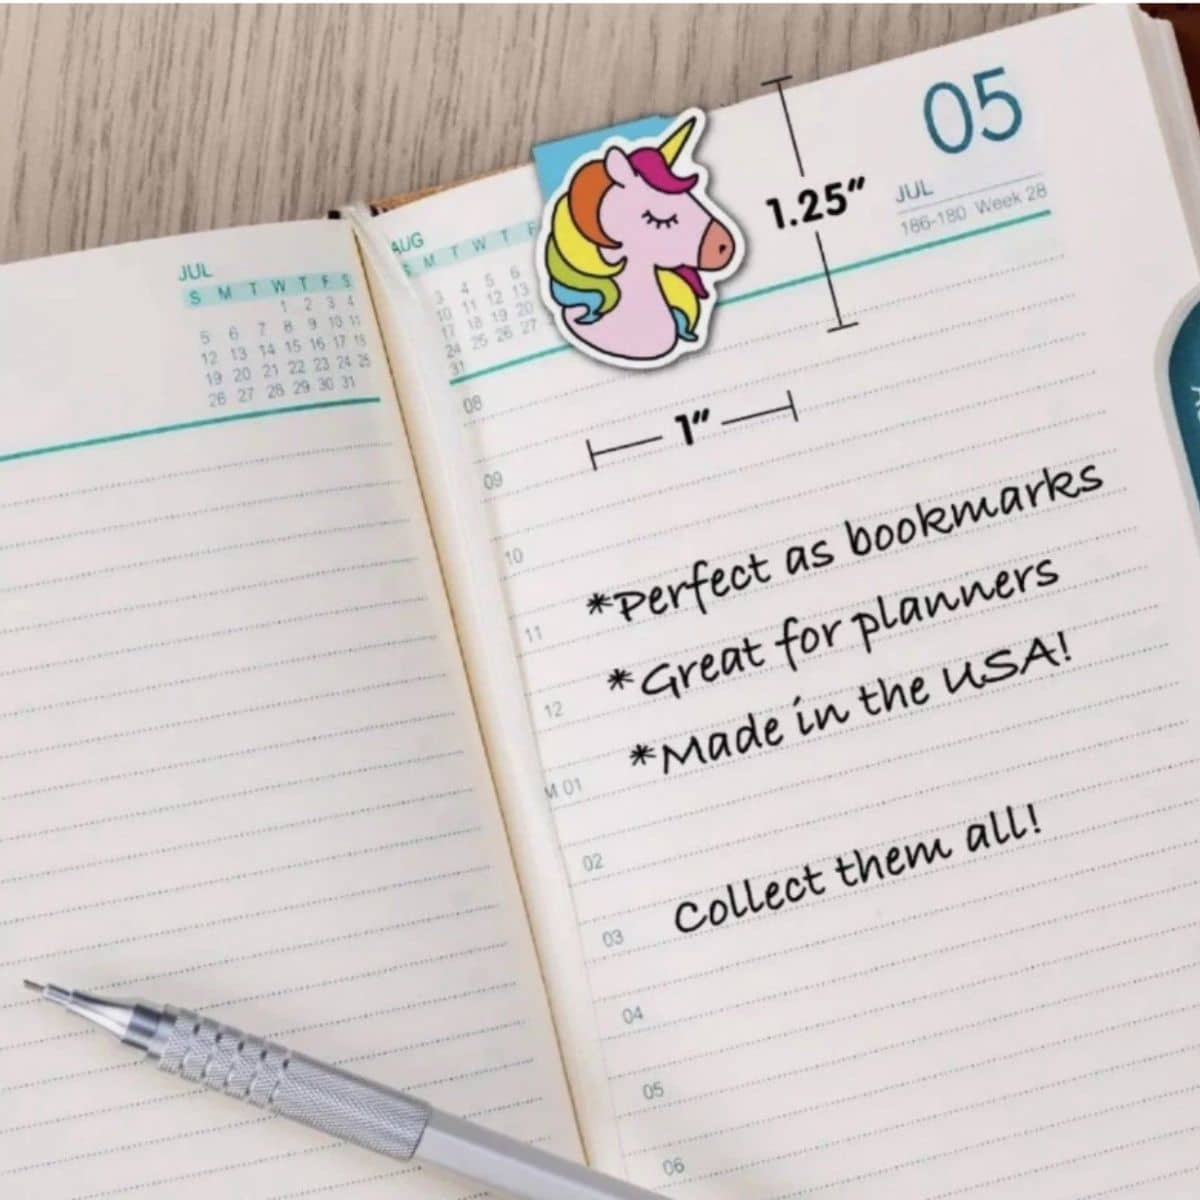 JUL
S M T W T F S
1 2 3 4
5 6 7 8 9 10 11
12 13 14 15 16 17 18
19 20 21 22 23 24 25
26 27 28 29 30 31
AUG
S M T W T F
3 4 5 6
10 11 12 13
17 18 19 20
24 25 26 27
31
05
JUL
186-180 Week 28
1.25"
1"
08
09
10
11
12
M 01
02
03
04
05
06
*Perfect as bookmarks
*Great for planners
*Made in the USA!
Collect them all!